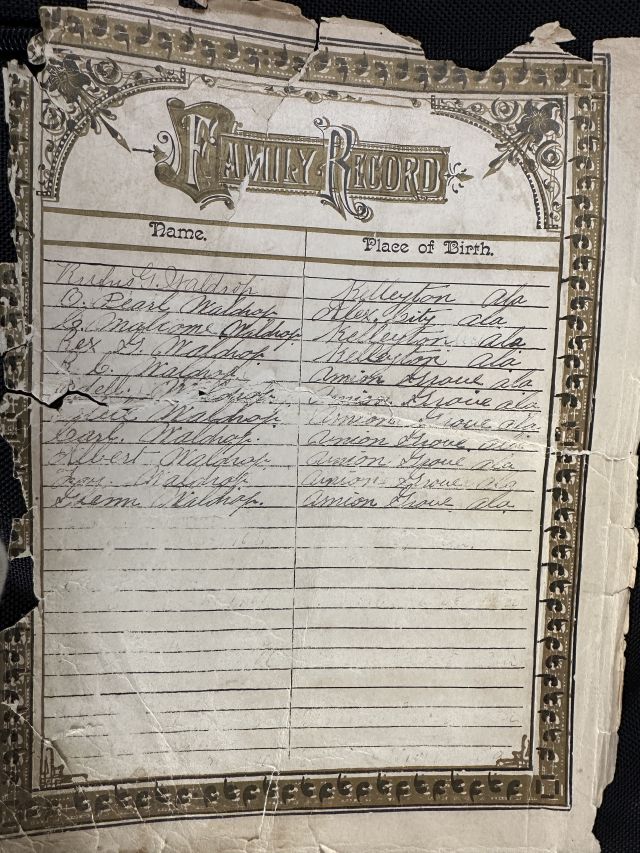 FAMILY RECORD
Name. Place of Birth.
Rufus G. Waldrop Kelleyton ala
O. Pearl Waldrop Alex City ala
Waldrop Kelleyton ala
Rex G. Waldrop Kelleyton ala
C. Waldrop Union Grove ala
Odell Waldrop Union Grove ala
Waldrop Union Grove ala
Carl Waldrop. Union Grove ala
Albert Waldrop Union Grove ala
Waldrop Union Grove ala
Glenn Waldrop. Union Grove ala.